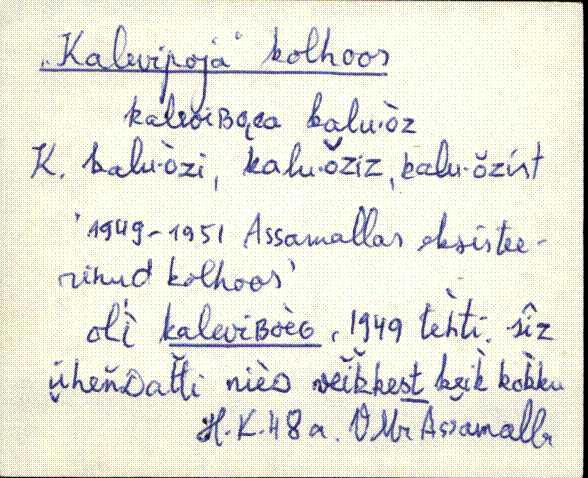 „Kalevipoja" kolhoos
kaleviBoea kalu·òz
K. kalu·òzi, kalu·ŏziz, kalu·ŏzist
'1949–1951 Assamallas eksistee-
rinud kolhoos'
oli kaleviBoèG, 1949 tehti. sîz
ühenDatti nièD veikkest keik kokku
H.K.48a. VMr Assamalla